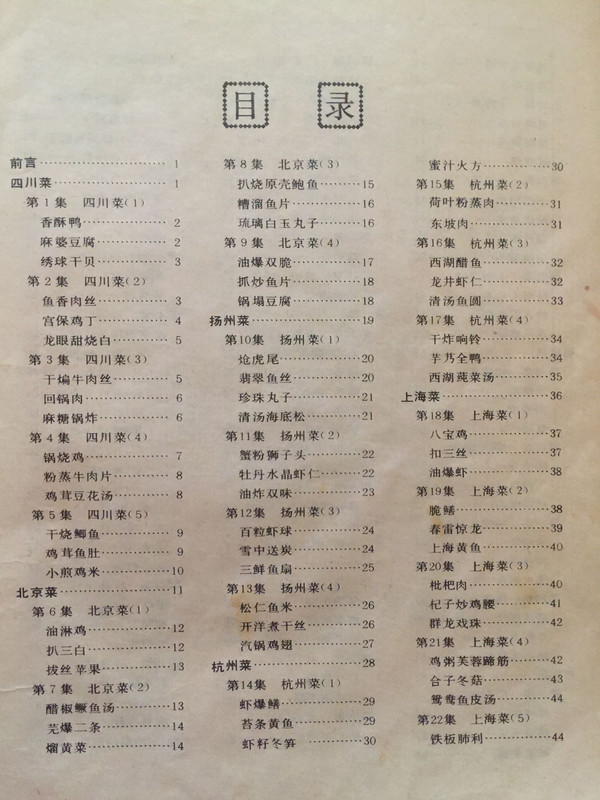 目 录
前言 1
四川菜 1
第1集 四川菜(1)
香酥鸭 2
麻婆豆腐 2
绣球干贝 3
第2集 四川菜(2)
鱼香肉丝 3
宫保鸡丁 4
龙眼甜烧白 5
第3集 四川菜(3)
干煸牛肉丝 5
回锅肉 6
麻糖锅炸 6
第4集 四川菜(4)
锅烧鸡 7
粉蒸牛肉片 8
鸡茸豆花汤 8
第5集 四川菜(5)
干烧鲫鱼 9
鸡茸鱼肚 9
小煎鸡米 10
北京菜 11
第6集 北京菜(1)
油淋鸡 12
扒三白 12
拔丝苹果 13
第7集 北京菜(2)
醋椒鳜鱼汤 13
芫爆二条 14
熘黄菜 14
第8集 北京菜(3)
扒烧原壳鲍鱼 15
糟溜鱼片 16
琉璃白玉丸子 16
第9集 北京菜(4)
油爆双脆 17
抓炒鱼片 18
锅塌豆腐 18
扬州菜 19
第10集 扬州菜(1)
炝虎尾 20
翡翠鱼丝 20
珍珠丸子 21
清汤海底松 21
第11集 扬州菜(2)
蟹粉狮子头 22
牡丹水晶虾仁 22
油炸双味 23
第12集 扬州菜(3)
百粒虾球 24
雪中送炭 24
三鲜鱼扇 25
第13集 扬州菜(4)
松仁鱼米 26
开洋煮干丝 26
汽锅鸡翅 27
杭州菜 28
第14集 杭州菜(1)
虾爆鳝 29
苔条黄鱼 29
虾籽冬笋 30
蜜汁火方 30
第15集 杭州菜(2)
荷叶粉蒸肉 31
东坡肉 31
第16集 杭州菜(3)
西湖醋鱼 32
龙井虾仁 32
清汤鱼圆 33
第17集 杭州菜(4)
干炸响铃 34
芋艿全鸭 34
西湖莼菜汤 35
上海菜 36
第18集 上海菜(1)
八宝鸡 37
扣三丝 37
油爆虾 38
第19集 上海菜(2)
脆鳝 38
春雷惊龙 39
上海黄鱼 40
第20集 上海菜(3)
枇杷肉 40
杞子炒鸡腰 41
群龙戏珠 42
第21集 上海菜(4)
鸡粥芙蓉蹄筋 42
合子冬菇 43
鸳鸯鱼皮汤 44
第22集 上海菜(5)
铁板肺利 44